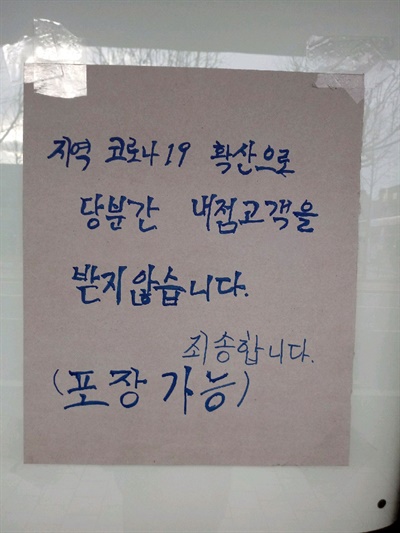 지역 코로나19 확산으로
당분간 내점고객을
받지않습니다.
죄송합니다.
(포장가능)